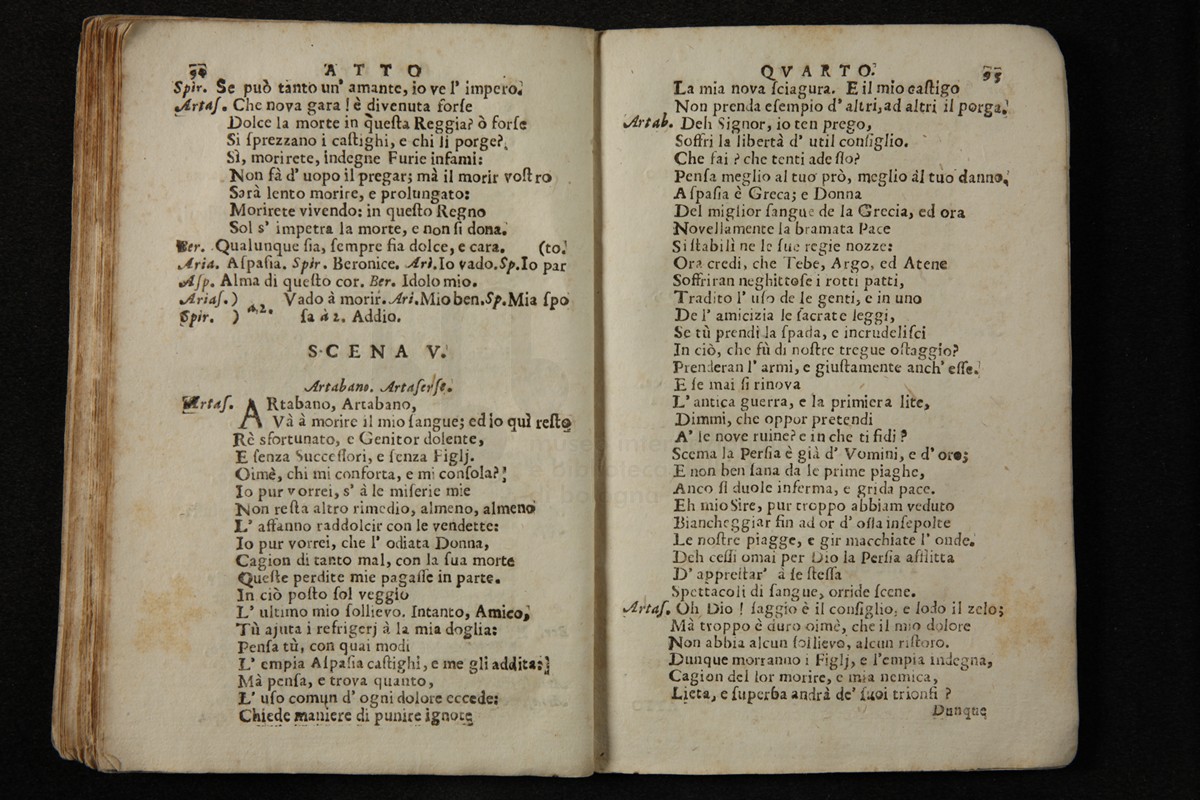 94 ATTO
Spir. Se può tanto un' amante, io ve l' impero.
Artaſ. Che nova gara! è divenuta forſe
Dolce la morte in queſta Reggia? ò forſe
Si ſprezzano i caſtighi, e chi li porge?
Sì, morirete, indegne Furie infami:
Non fà d' uopo il pregar; mà il morir voſtro
Sarà lento morire, e prolungato:
Morirete vivendo: in queſto Regno
Sol s' impetra la morte, e non ſi dona.
Ber. Qualunque ſia, ſempre fia dolce, e cara. (to.
Aria. Aſpaſia. Spir. Beronice. Ari. Io vado. Sp. Io par
Aſp. Alma di queſto cor. Ber. Idolo mio.
Ariaſ. ) à 2. Vado à morir. Ari. Mio ben. Sp. Mia ſpo
Spir. ) ſa à 2. Addio.
SCENA V.
Artabano. Artaſerſe.
Artaſ. ARtabano, Artabano,
Và à morire il mio ſangue; ed io quì reſto
Rè sfortunato, e Genitor dolente,
E ſenza Succeſſori, e ſenza Figlj.
Oimè, chi mi conforta, e mi conſola?
Io pur vorrei, s' à le miſerie mie
Non reſta altro rimedio, almeno, almeno
L' affanno raddolcir con le vendette:
Io pur vorrei, che l' odiata Donna,
Cagion di tanto mal, con la ſua morte
Queſte perdite mie pagaſſe in parte.
In ciò poſto ſol veggio
L' ultimo mio ſollievo. Intanto, Amico,
Tù ajuta i refrigerj à la mia doglia:
Penſa tù, con quai modi
L' empia Aſpaſia caſtighi, e me gli addita:
Mà penſa, e trova quanto,
L' uſo comun d' ogni dolore eccede:
Chiede maniere di punire ignote
QVARTO. 95
La mia nova ſciagura. E il mio caſtigo
Non prenda eſempio d' altri, ad altri il porga.
Artab. Deh Signor, io ten prego,
Soffri la libertà d' util conſiglio.
Che fai? che tenti adeſſo?
Penſa meglio al tuo prò, meglio àl tuo danno.
Aſpaſia è Greca; e Donna
Del miglior ſangue de la Grecia, ed ora
Novellamente la bramata Pace
Si ſtabilì ne le ſue regie nozze:
Ora credi, che Tebe, Argo, ed Atene
Soffriran neghittoſe i rotti patti,
Tradito l' uſo de le genti, e in uno
De l' amicizia le ſacrate leggi,
Se tù prendi la ſpada, e incrudeliſci
In ciò, che fù di noſtre tregue oſtaggio?
Prenderan l' armi, e giuſtamente anch' eſſe.
E ſe mai ſi rinova
L' antica guerra, e la primiera lite,
Dimmi, che oppor pretendi
A' le nove ruine? e in che ti fidi?
Scema la Perſia è già d' Vomini, e d' oro;
E non ben ſana da le prime piaghe,
Anco ſi duole inferma, e grida pace.
Eh mio Sire, pur troppo abbiam veduto
Biancheggiar fin ad or d' oſſa inſepolte
Le noſtre piagge, e gir macchiate l' onde.
Deh ceſſi omai per Dio la Perſia afflitta
D' appreſtar' à ſe ſteſſa
Spettacoli di ſangue, orride ſcene.
Artaſ. Oh Dio! ſaggio è il conſiglio, e lodo il zelo;
Mà troppo è duro oimè, che il mio dolore
Non abbia alcun ſollievo, alcun riſtoro.
Dunque morranno i Figlj, e l'empia indegna,
Cagion del lor morire, e mia nemica,
Lieta, e ſuperba andrà de' ſuoi trionfi?
Dunque